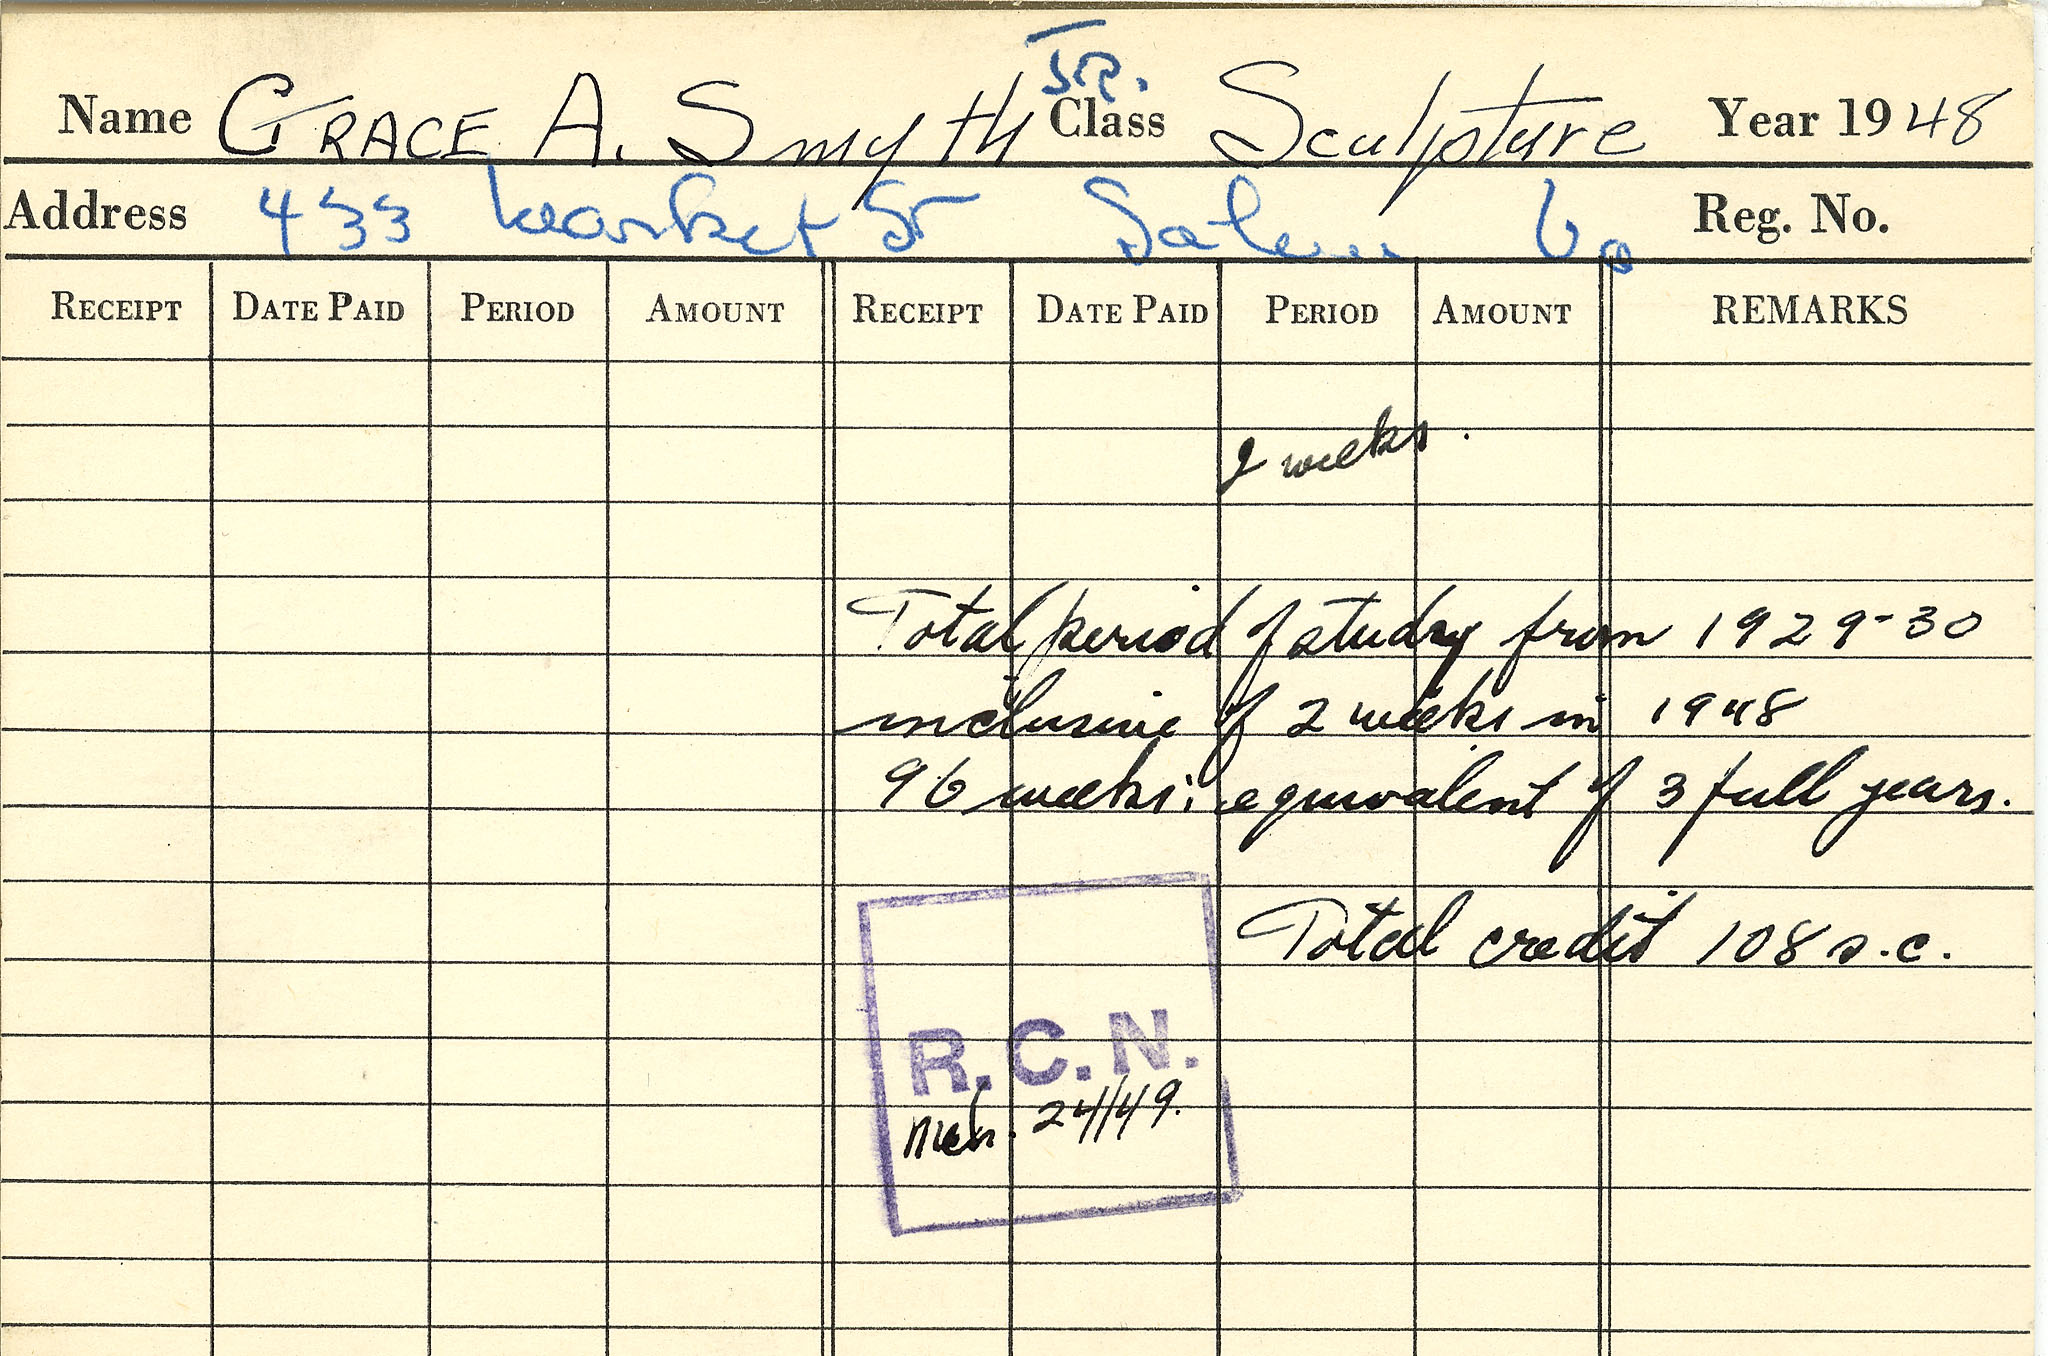 Name GRACE A. Smyth JR. Class Sculpture Year 1948
Address 433 Market St Salem Va Reg. No.
RECEIPT DATE PAID PERIOD AMOUNT RECEIPT DATE PAID PERIOD AMOUNT REMARKS
2 weeks.
Total period of study from 1929-30
inclusive of 2 weeks in 1948
96 weeks: equivalent of 3 full years.
Total credit 108 s.c.
R.C.N.
Mch. 24/49.